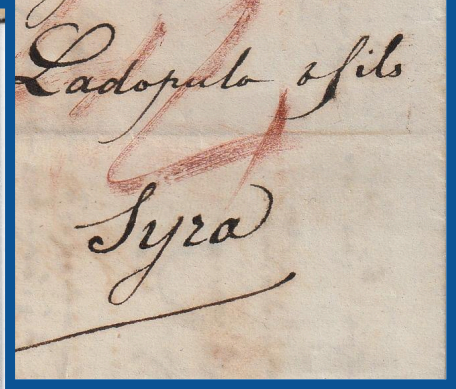 Ladopulo & fils
Syra